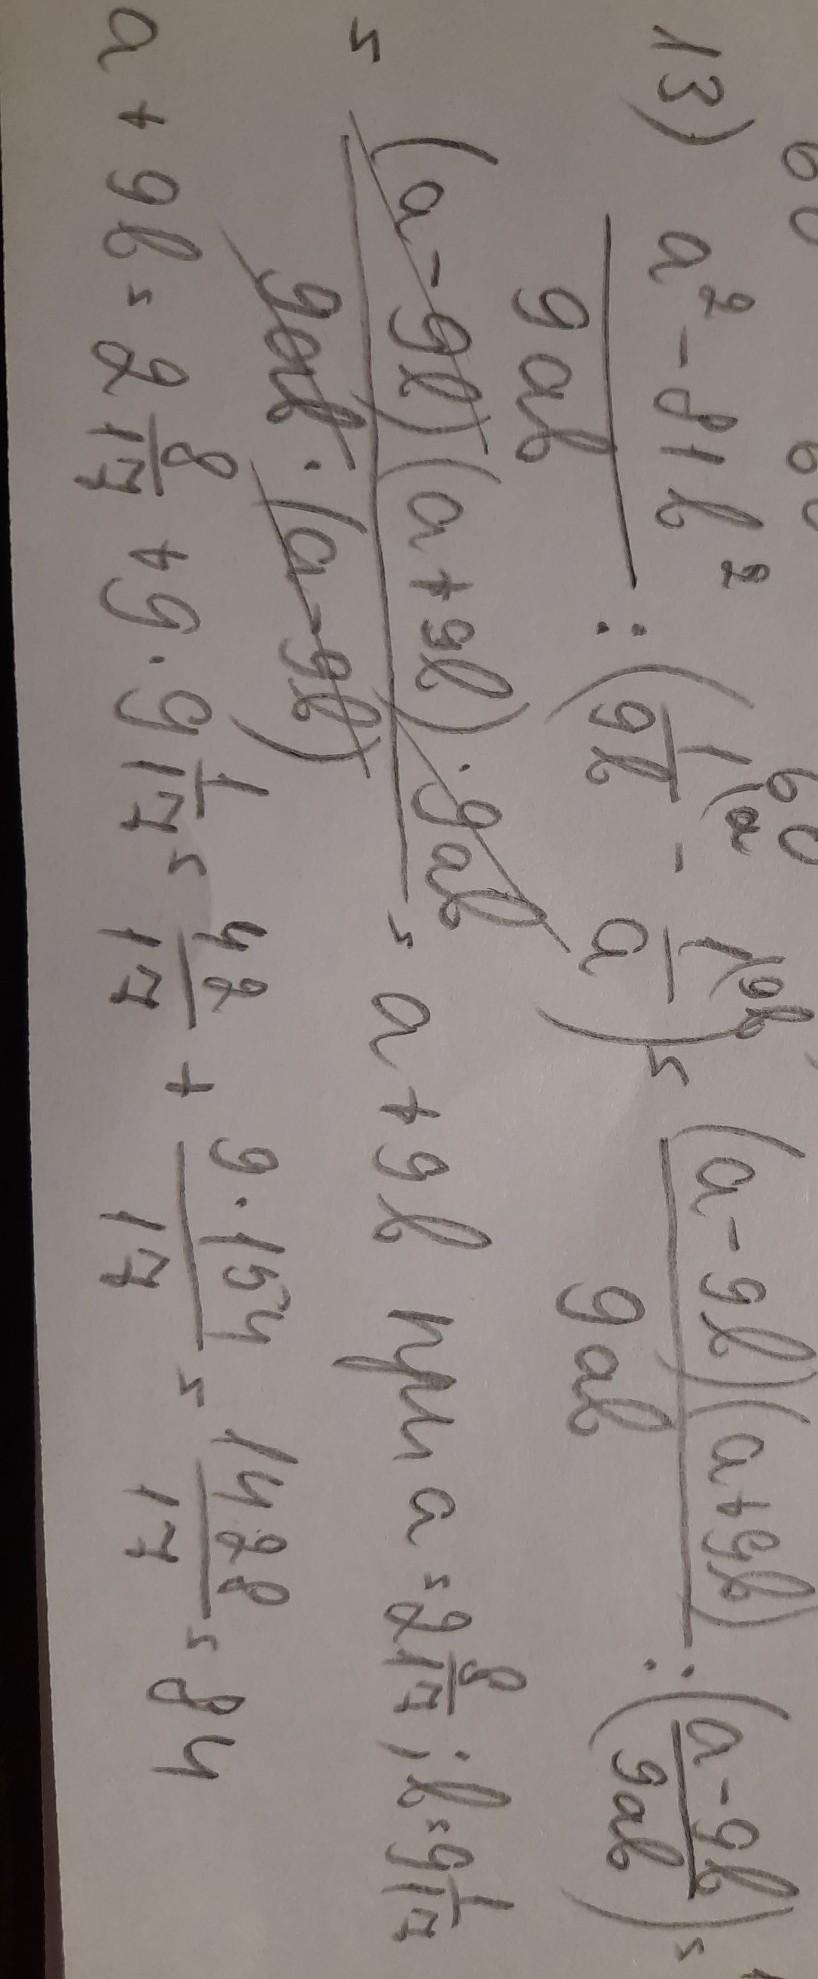 13) (a² - 81b²)/(9ab) : (1(a/(9b) - 1(9b/a) = ((a - 9b)(a + 9b))/(9ab) : ((a - 9b)/(9ab)) =
= ((a - 9b)(a + 9b) · 9ab)/(9ab · (a - 9b)) = a + 9b при a = 2 8/17 ; b = 9 1/17
a + 9b = 2 8/17 + 9 · 9 1/17 = 42/17 + (9 · 154)/17 = 1428/17 = 84